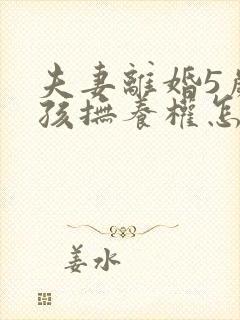 夫妻離婚5歲
孩撫養權怎
姜水